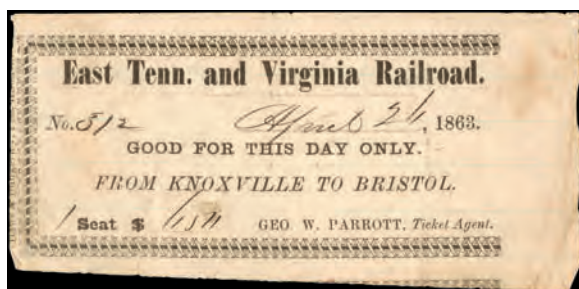 East Tenn. and Virginia Railroad.
No. 512 April 26, 1863.
GOOD FOR THIS DAY ONLY.
FROM KNOXVILLE TO BRISTOL.
1 Seat $ GEO. W. PARROTT, Ticket Agent.